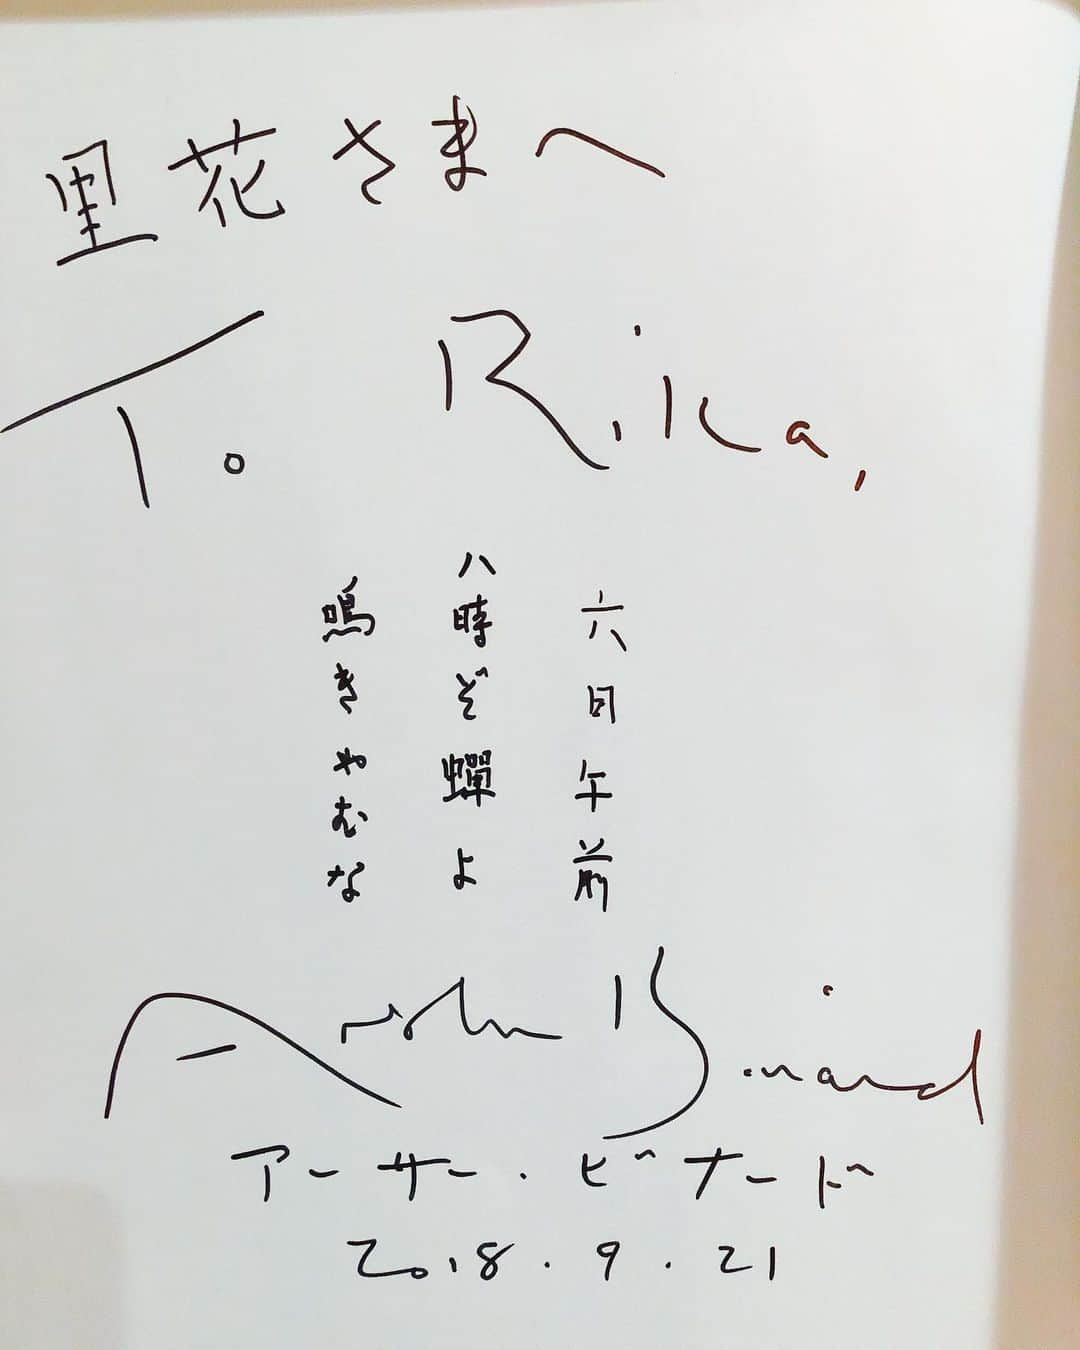 里花さまへ
To Rika,
六日午前
八時ぞ蟬よ
鳴きやむな
Arthur Binard
アーサー・ビナード
2018.9.21